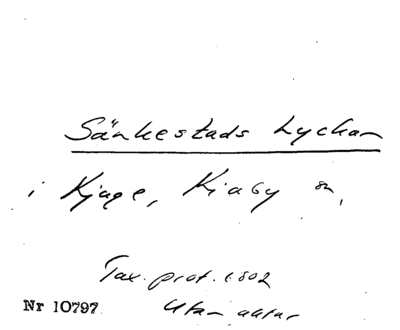 Sänkestads Lyckan
i Kjuge, Kiaby sn,
Tax. prot. 1802
Nr 10797 Utan aktnr